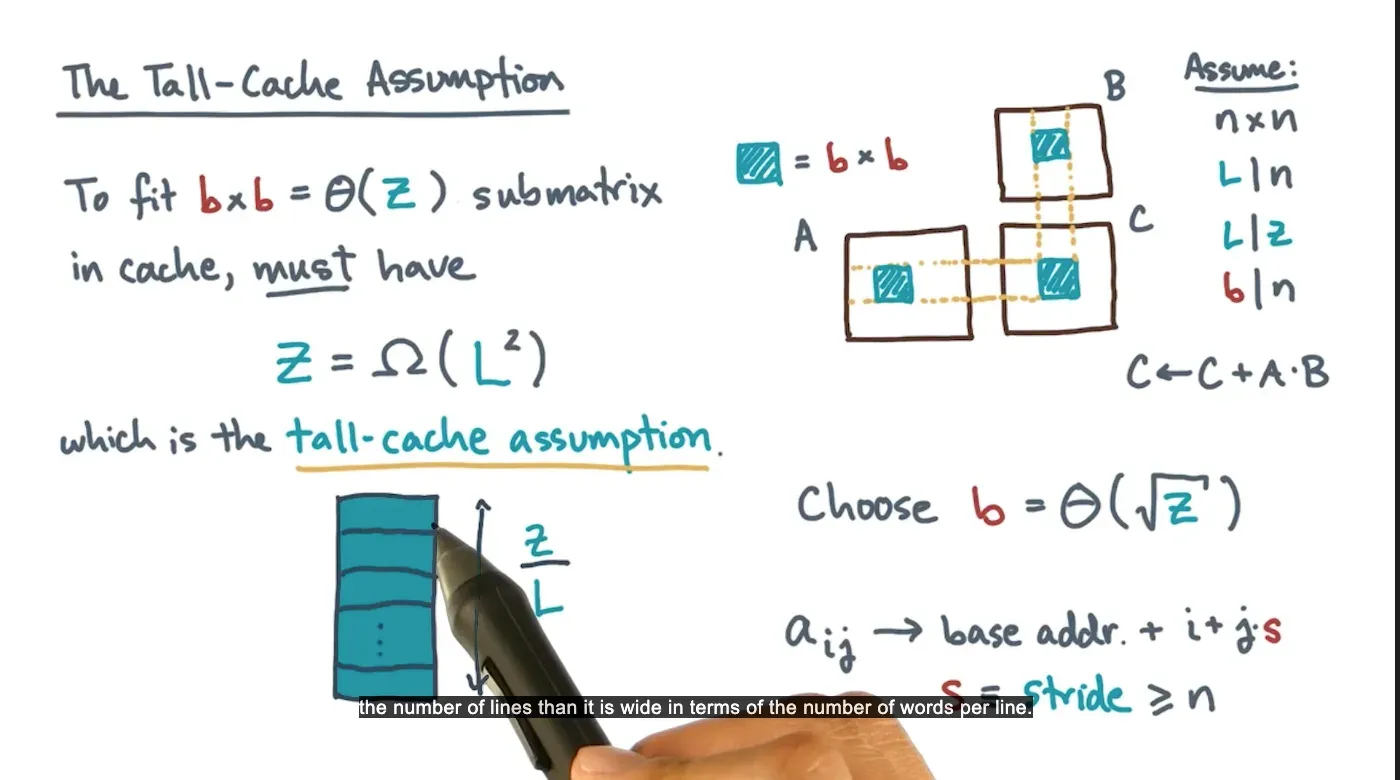 The Tall-Cache Assumption
To fit b×b = Θ(Z) submatrix
in cache, must have
Z = Ω(L²)
which is the tall-cache assumption.
Z
L
= b × b
A
B
C
Assume:
n×n
L|n
L|Z
b|n
C←C+A·B
Choose b = Θ(√Z)
aᵢⱼ → base addr. + i+j·s
s = stride ≥ n
the number of lines than it is wide in terms of the number of words per line.